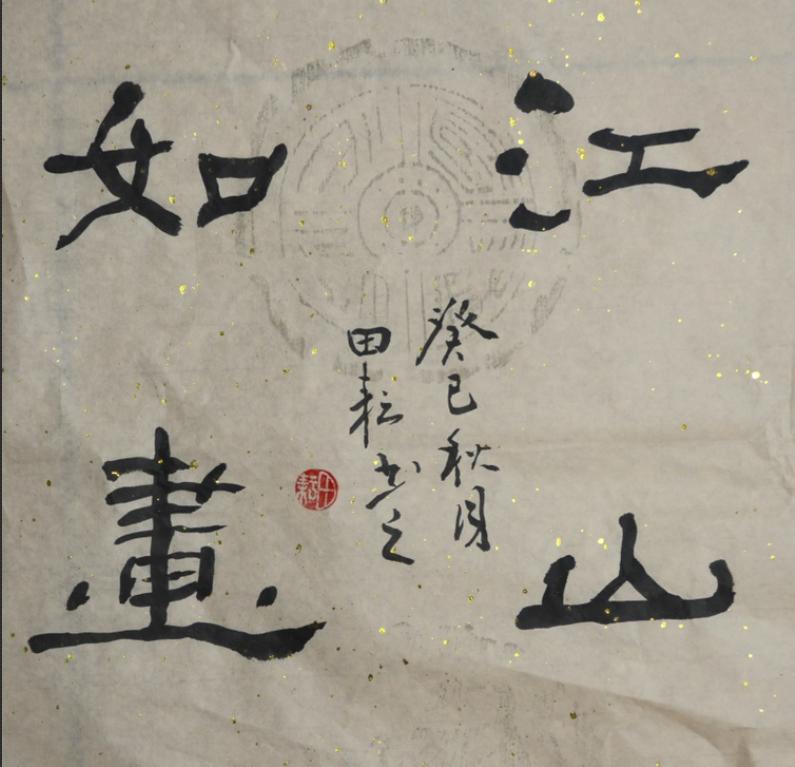 江山
如畫
癸巳秋月
田耘書之